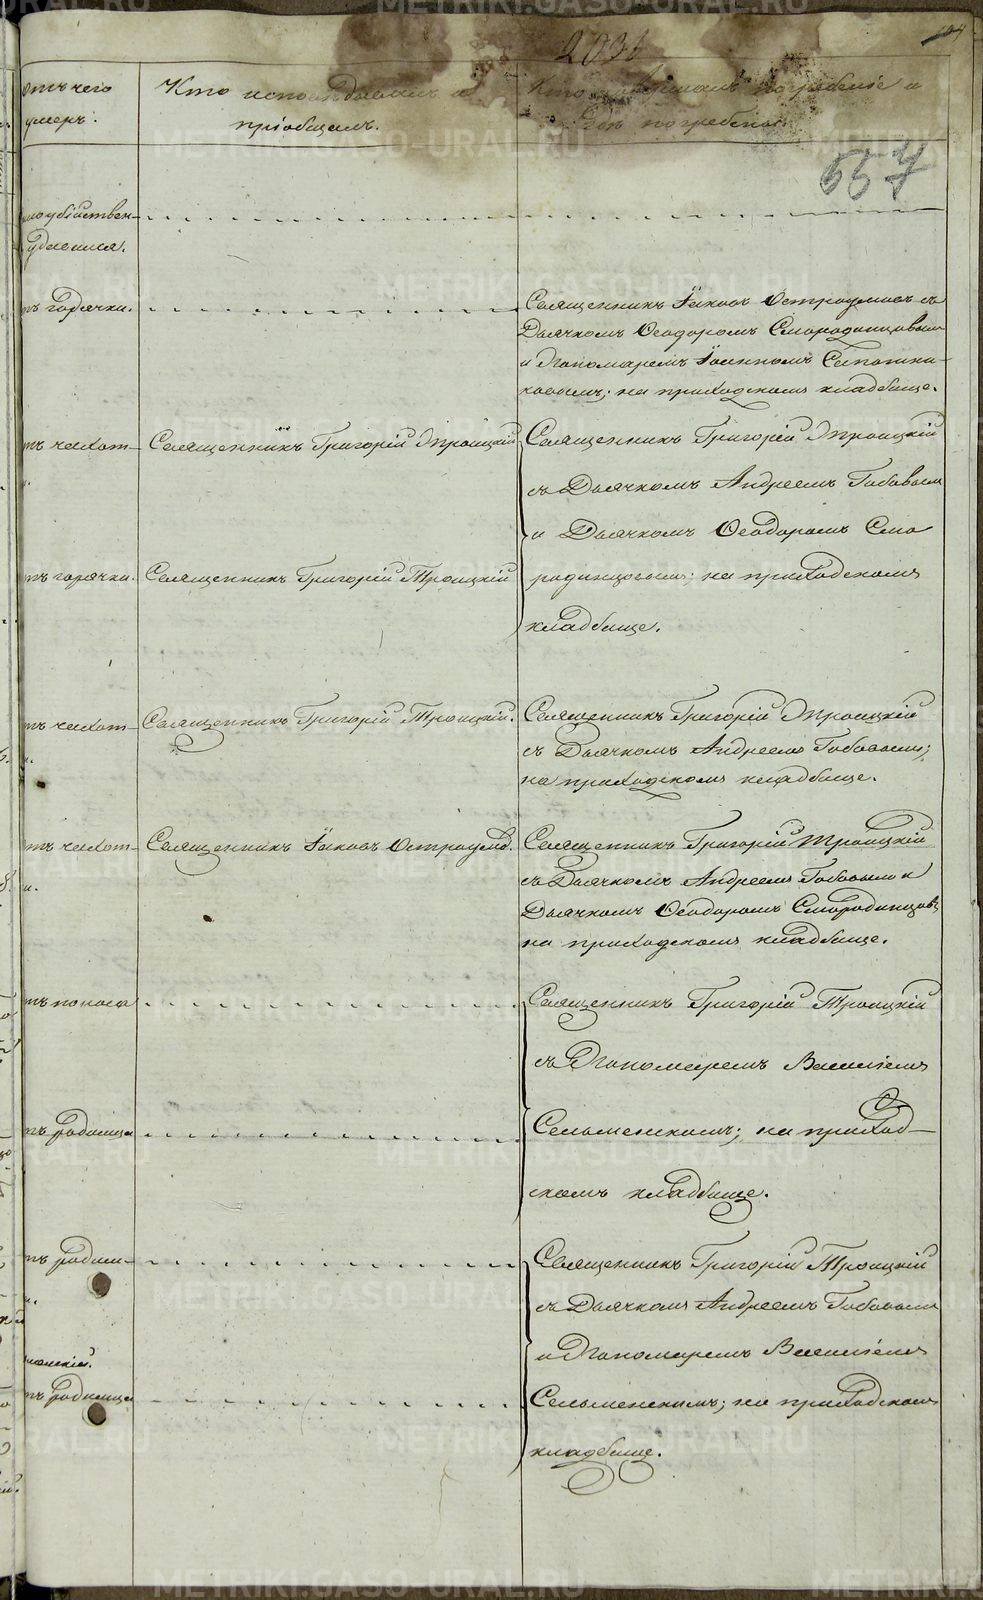 отъ чего
умеръ.
Кто исповѣдывалъ и
пріобщалъ.
Кто совершалъ погребеніе и
Гдѣ погребенъ.
557
моубійствен-
удавился.
тъ горячки.
Священникъ Іаковъ Остроумовъ съ
Дьячкомъ Ѳеодоромъ Смородинцовымъ
и Пономаремъ Іоанномъ
ковымъ; на приходскомъ кладбище.
тъ чахот-
и.
Священникъ Григорій Троицкій
Священникъ Григорій Троицкій
съ Дьячкомъ Андреемъ Бобовымъ
и Дьячкомъ Ѳеодоромъ Смо
родинцовымъ; на приходскомъ
кладбище.
тъ горячки.
Священникъ Григорій Троицкій
тъ чахот-
и.
Священникъ Григорій Троицкій.
Священникъ Григорій Троицкій
съ Дьячкомъ Андреемъ Бобовымъ;
на приходскомъ кладбище.
тъ чахот-
и.
Священникъ Іаковъ Остроумовъ.
Священникъ Григорій Троицкій
съ Дьячкомъ Андреемъ Бобовымъ и
Дьячкомъ Ѳеодоромъ Смородинцовъ
на приходскомъ кладбище.
тъ поноса
Священникъ Григорій Троицкій
съ Пономаремъ Василіемъ
Сельменскимъ; на приход-
скомъ кладбище.
тъ родимца
тъ родим-
Священникъ Григорій Троицкій
съ Дьячкомъ Андреемъ Бобовымъ
и Пономаремъ Василіемъ
Сельменскимъ; на приходскомъ
кладбище.
тъ родимца
METRIKI.GASO-URAL.RU